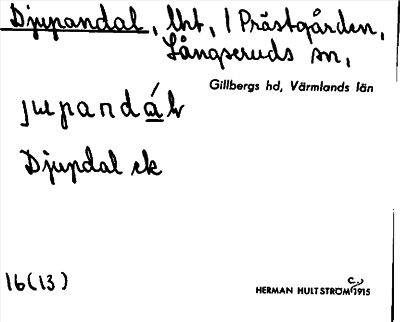 Djupandal, lht, / Prästgården,
Långseruds sn,
Gillbergs hd, Värmlands län
Djupdal ek
16(13)
HERMAN HULTSTRÖM c. 1915